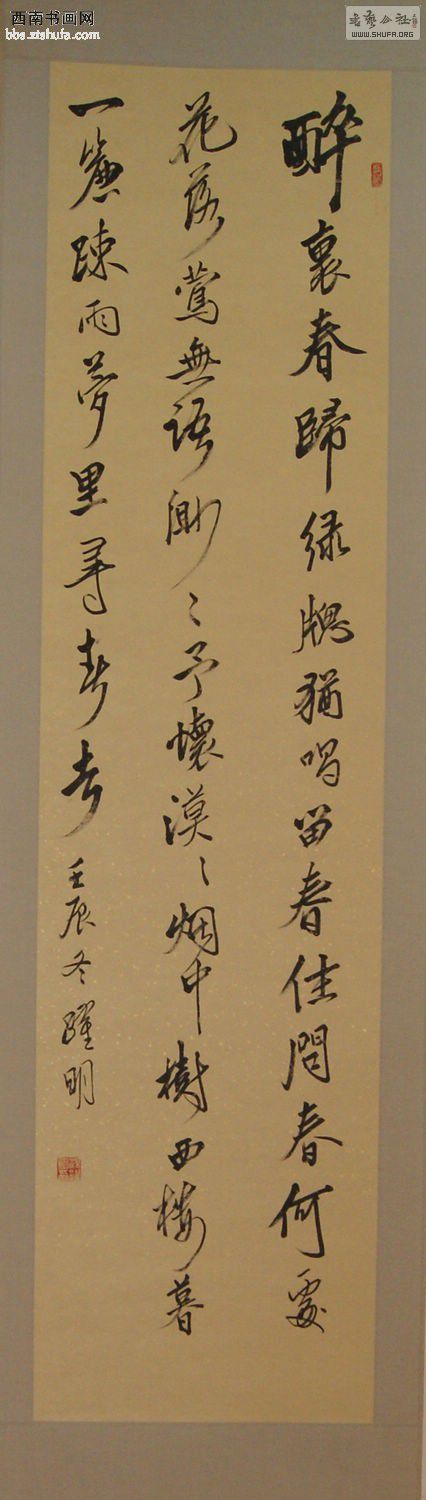 西南书画网
bbs.ztshufa.com
书艺公社
WWW.SHUFA.ORG
醉裏春歸绿牕猶唱留春住問春何處
花落鶯無語渺〻予懷漠〻烟中樹西楼暮
一簾疎雨夢里尋春去
壬辰冬躍明